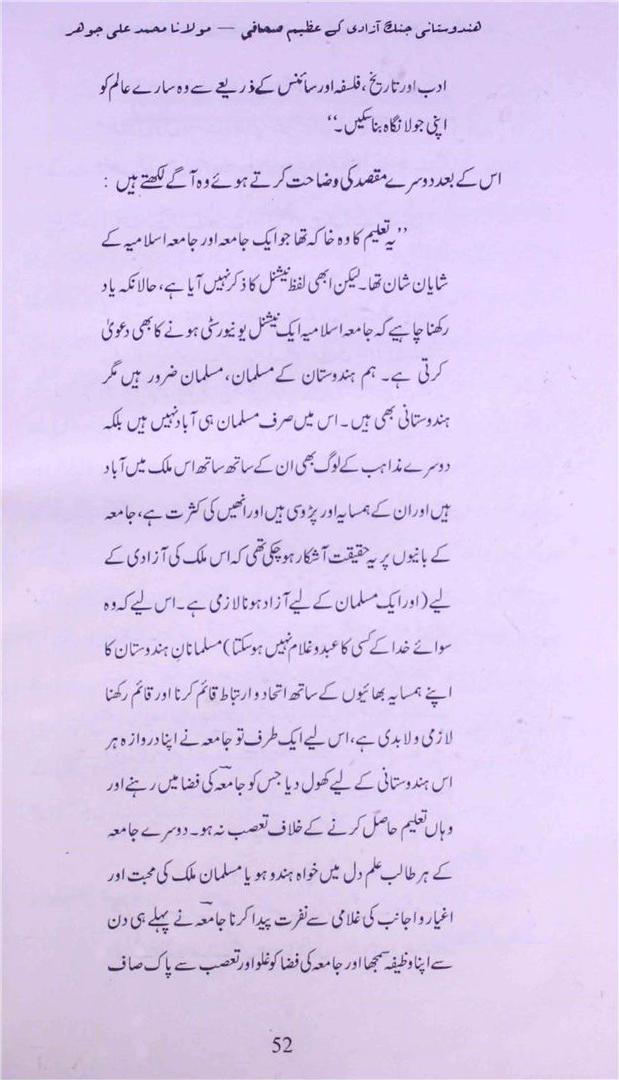 هندوستانی جنگ آزادی کے عظیم صحافی — مولانا محمد علی جوهر
ادب اور تاریخ، فلسفہ اور سائنس کے ذریعے سے وہ سارے عالم کو
اپنی جولانگاہ بنا سکیں۔‘‘
اس کے بعد دوسرے مقصد کی وضاحت کرتے ہوئے وہ آگے لکھتے ہیں :
’’یہ تعلیم کا وہ خاکہ تھا جو ایک جامعہ اور جامعہ اسلامیہ کے
شایان شان تھا۔ لیکن ابھی لفظ نیشنل کا ذکر نہیں آیا ہے، حالانکہ یاد
رکھنا چاہیے کہ جامعہ اسلامیہ ایک نیشنل یونیورسٹی ہونے کا بھی دعویٰ
کرتی ہے۔ ہم ہندوستان کے مسلمان، مسلمان ضرور ہیں مگر
ہندوستانی بھی ہیں۔ اس میں صرف مسلمان ہی آباد نہیں ہیں بلکہ
دوسرے مذاہب کے لوگ بھی ان کے ساتھ ساتھ اس ملک میں آباد
ہیں اور ان کے ہمسایہ اور پڑوسی ہیں اور انھیں کی کثرت ہے، جامعہ
کے بانیوں پر یہ حقیقت آشکار ہو چکی تھی کہ اس ملک کی آزادی کے
لیے (اور ایک مسلمان کے لیے آزاد ہونا لازمی ہے۔ اس لیے کہ وہ
سوائے خدا کے کسی کا عبد و غلام نہیں ہوسکتا) مسلمانانِ ہندوستان کا
اپنے ہمسایہ بھائیوں کے ساتھ اتحاد و ارتباط قائم کرنا اور قائم رکھنا
لازمی و لابدی ہے، اس لیے ایک طرف تو جامعہ نے اپنا دروازہ ہر
اس ہندوستانی کے لیے کھول دیا جس کو جامعہ کی فضا میں رہنے اور
وہاں تعلیم حاصل کرنے کے خلاف تعصب نہ ہو۔ دوسرے جامعہ
کے ہر طالب علم دل میں خواہ ہندو ہو یا مسلمان ملک کی محبت اور
اغیار و اجانب کی غلامی سے نفرت پیدا کرنا جامعہ نے پہلے ہی دن
سے اپنا وظیفہ سمجھا اور جامعہ کی فضا کو غلو اور تعصب سے پاک صاف
52